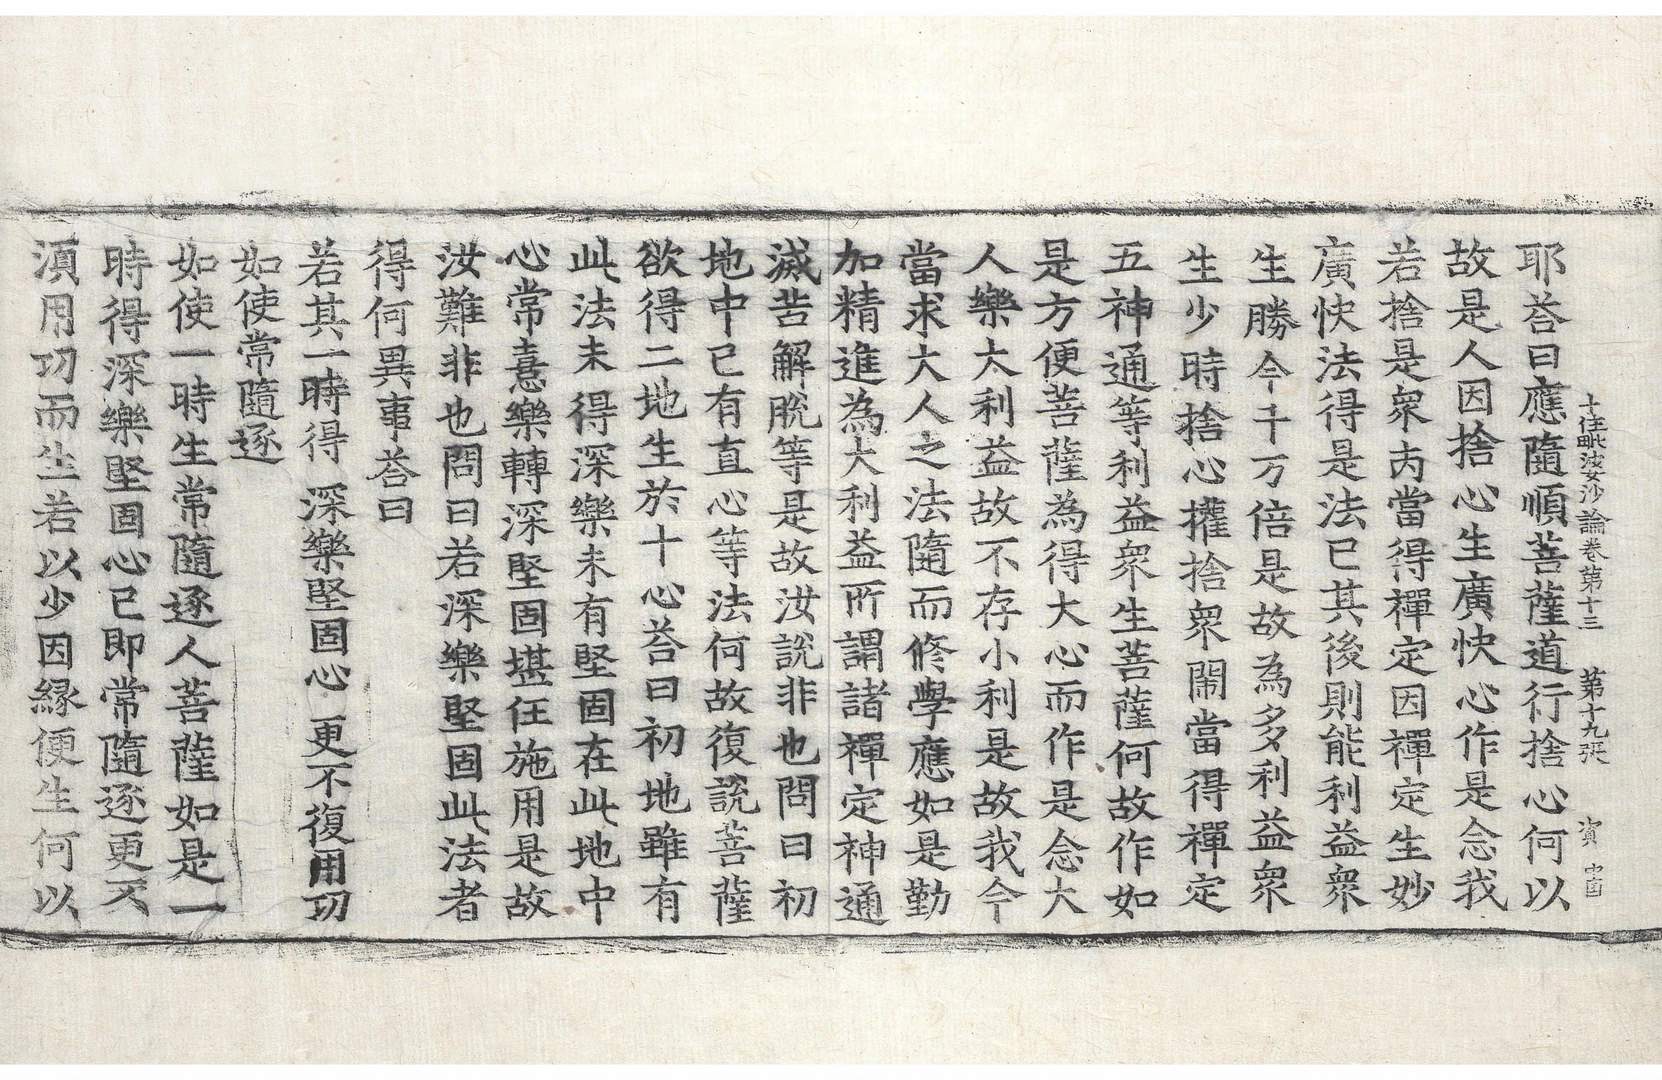 十住毗婆沙論卷第十三 第十九張 資
耶荅曰應隨順菩薩道行捨心何以
故是人因捨心生廣快心作是念我
若捨是衆內當得禪定因禪定生妙
廣快法得是法已其後則能利益衆
生勝今千万倍是故為多利益衆
生少時捨心攉捨衆閙當得禪定
五神通等利益衆生菩薩何故作如
是方便菩薩為得大心而作是念大
人樂大利益故不存小利是故我今
當求大人之法隨而修學應如是勤
加精進為大利益所謂諸禪定神通
滅苦解脫等是故汝說非也問曰初
地中已有直心等法何故復說菩薩
欲得二地生於十心荅曰初地雖有
此法未得深樂未有堅固在此地中
心常憙樂轉深堅固堪任施用是故
汝難非也問曰若深樂堅固此法者
得何異事荅曰
若其一時得 深樂堅固心 更不復用功
如使常隨逐
如使一時生常隨逐人菩薩如是一
時得深樂堅固心已即常隨逐更不
須用功而生若以少因緣便生何以